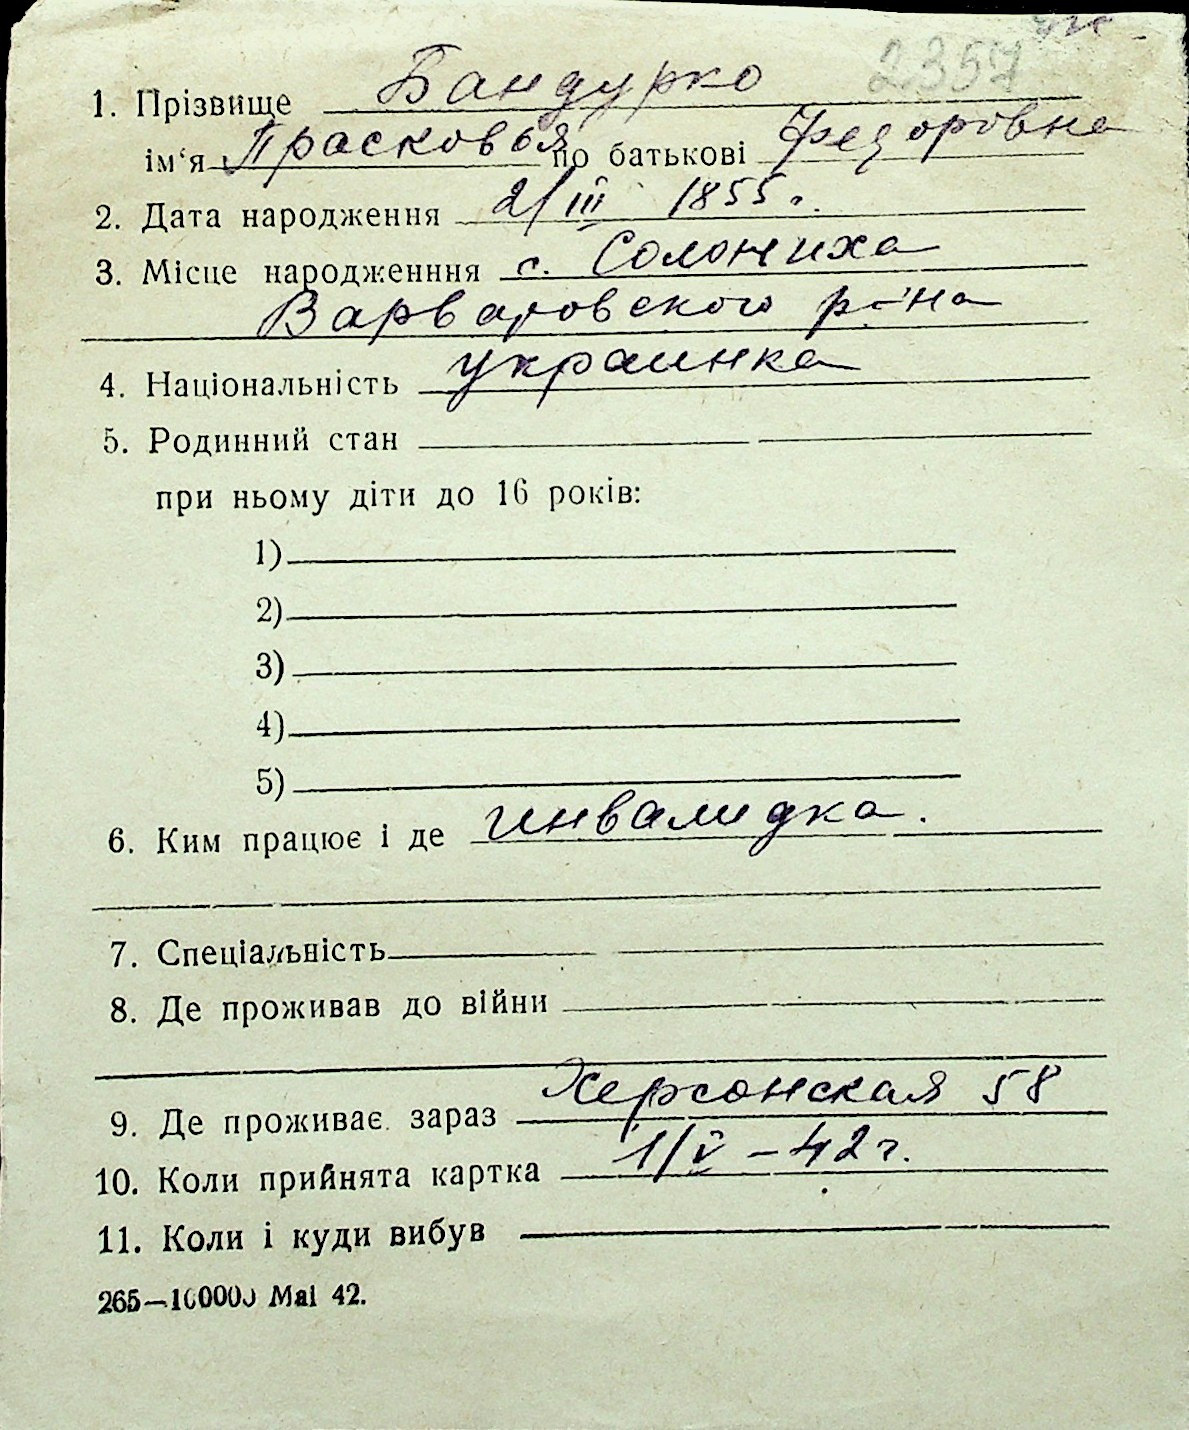 2357
1. Прізвище Бандурко
ім‘я Прасковья по батькові Федоровна
2. Дата народження 2/III 1855 г.
3. Місце народженння с. Солониха
Варваровского р-на
4. Національність украинка
5. Родинний стан
при ньому діти до 16 років:
1)
2)
3)
4)
5)
6. Ким працює і де инвалидка.
7. Спеціальність
8. Де проживав до війни
9. Де проживає зараз Херсонская 58
10. Коли прийнята картка 1/V – 42 г.
11. Коли і куди вибув
265—100000 Mai 42.